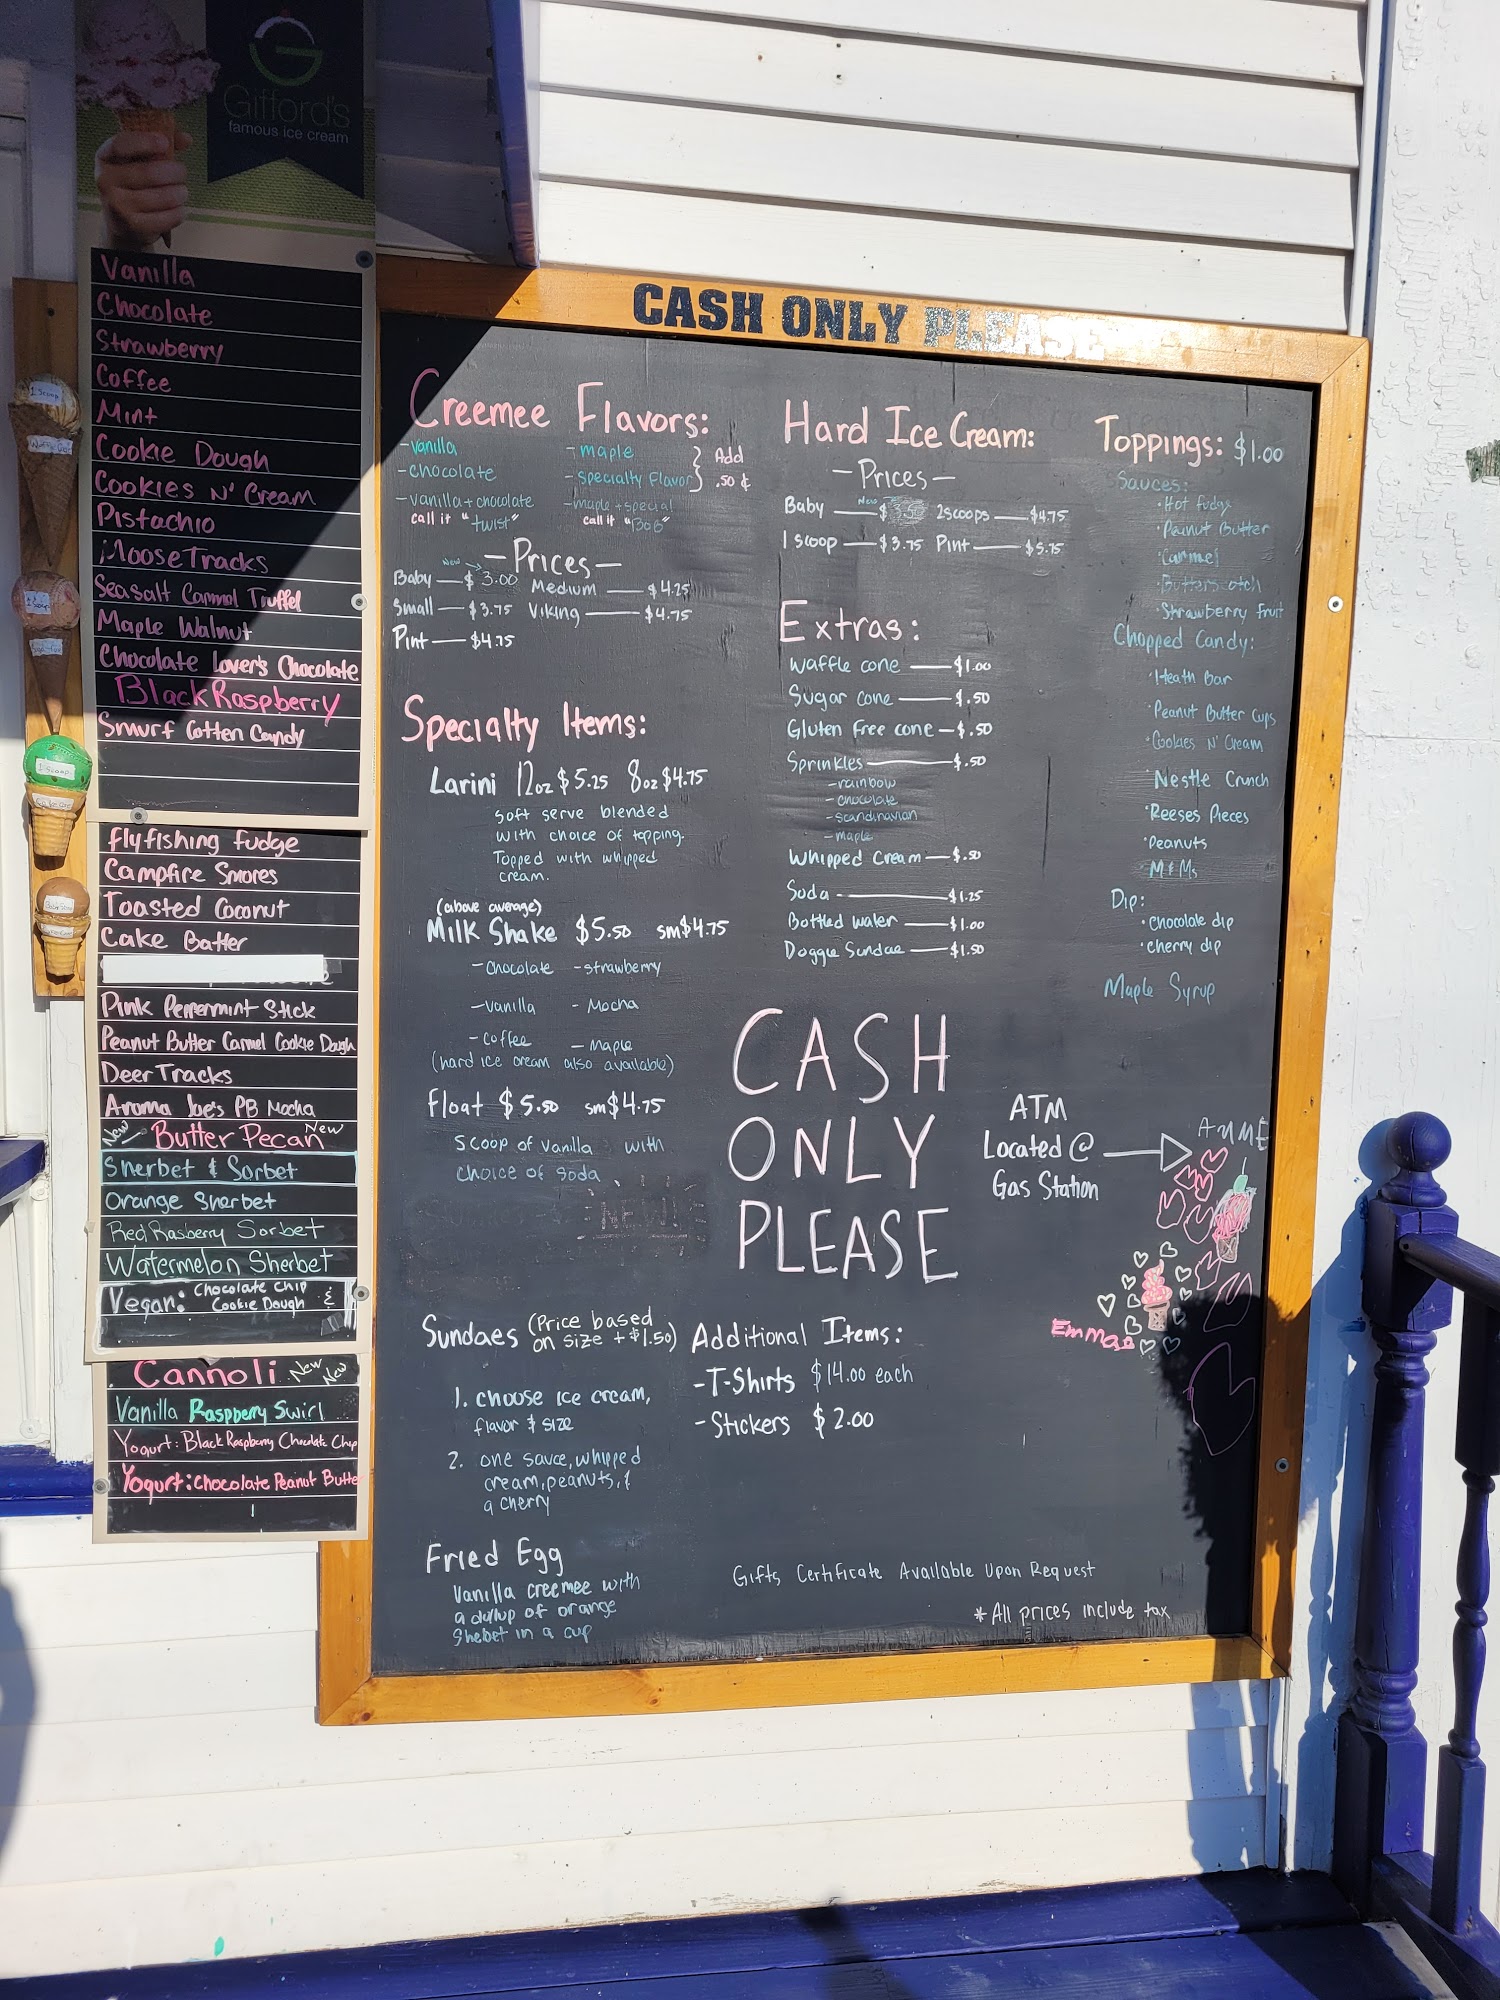 Gifford's
famous ice cream
Vanilla
Chocolate
Strawberry
Coffee
Mint
Cookie Dough
Cookies N' Cream
Pistachio
Moose Tracks
Seasalt Carmel Truffel
Maple Walnut
Chocolate Lover's Chocolate
Black Raspberry
Smurf Cotten Candy
flyfishing fudge
Campfire Smores
Toasted Coconut
Cake Batter
Pink Peppermint Stick
Peanut Butter Carmel Cookie Dough
Deer Tracks
Aroma Joe's PB Mocha
New Butter Pecan New
Sherbet & Sorbet
Orange Sherbet
Red Rasberry Sorbet
Watermelon Sherbet
Vegan: Chocolate Chip
Cookie Dough &
Cannoli New New
Vanilla Raspberry Swirl
Yogurt: Black Raspberry Chocolate Chip
Yogurt: Chocolate Peanut Butte
1 Scoop
CASH ONLY PLEASE
Creemee Flavors:
- vanilla
- chocolate
- vanilla + chocolate
call it "twist"
- maple
- specialty Flavor
} Add
.50 ¢
- maple + special
call it "Bob"
- Prices -
New
Baby — $3.00
Small — $3.75
Pint — $4.75
Medium — $4.25
Viking — $4.75
Specialty Items:
Larini 12oz $5.25 8oz $4.75
soft serve blended
with choice of topping.
Topped with whipped
cream.
(above average)
Milk Shake $5.50 sm $4.75
- Chocolate - strawberry
- Vanilla - Mocha
- Coffee - Maple
(hard ice cream also available)
float $5.50 sm $4.75
Scoop of vanilla with
choice of soda
NEW!
Sundaes (Price based
on size + $1.50)
1. choose ice cream,
flavor & size
2. one sauce, whipped
cream, peanuts, &
a cherry
Fried Egg
Vanilla creemee with
a dollup of orange
Shebet in a cup
Hard Ice Cream:
- Prices -
New
Baby — $
1 scoop — $3.75
2scoops — $4.75
Pint — $5.75
Extras:
Waffle cone — $1.00
Sugar cone — $.50
Gluten free cone — $.50
Sprinkles — $.50
- rainbow
- chocolate
- scandinavian
- maple
Whipped Cream — $.50
Soda — $1.25
Bottled water — $1.00
Doggie Sundae — $1.50
Toppings: $1.00
Sauces:
· Hot fudge
· Peanut Butter
· Carmel
· Butterscotch
· Strawberry fruit
Chopped Candy:
· Heath Bar
· Peanut Butter Cups
· Cookies N' Cream
· Nestle Crunch
· Reeses Pieces
· Peanuts
· M&Ms
Dip:
· chocolate dip
· cherry dip
Maple Syrup
CASH
ONLY
PLEASE
ATM
Located @
Gas Station
Emma
Additional Items:
- T-Shirts $14.00 each
- Stickers $2.00
Gifts Certificate Available Upon Request
* All prices include tax